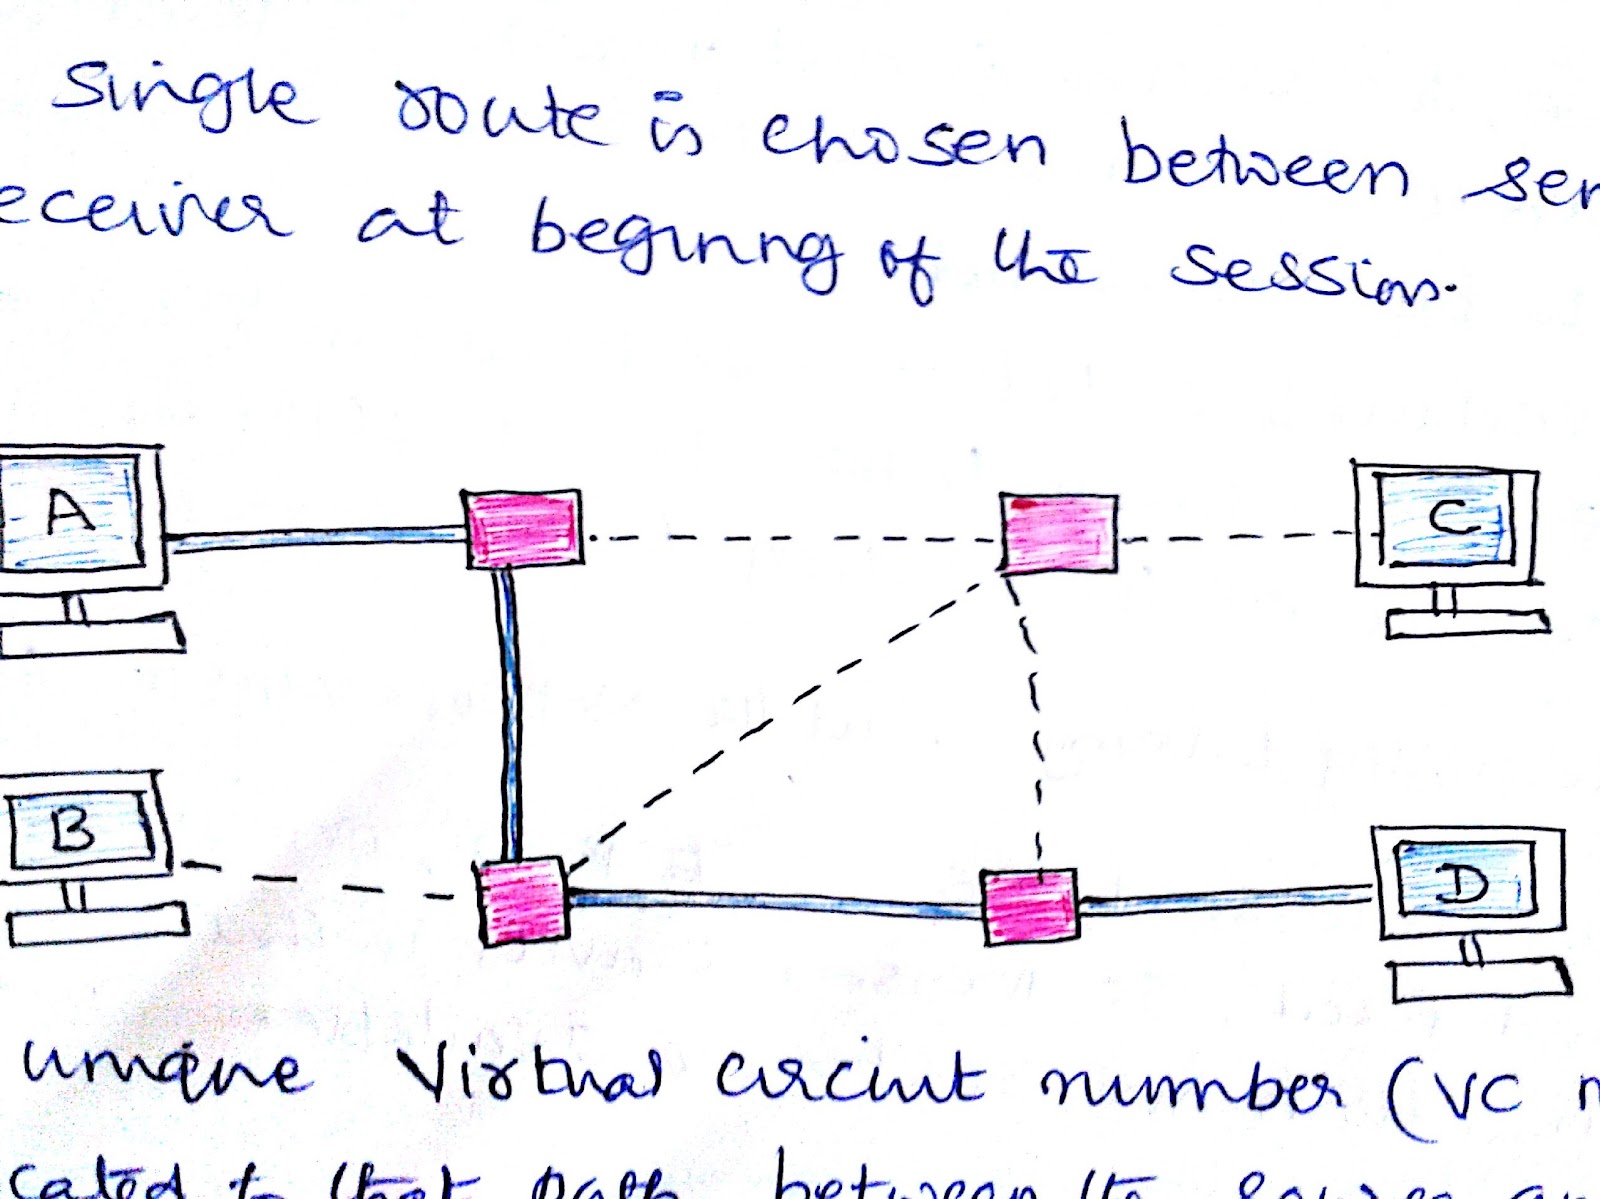 Single route is chosen between ser
eceiver at beginng of the session.
A
C
B
D
unique Virtual circuit number (VC n
cated to that path between the